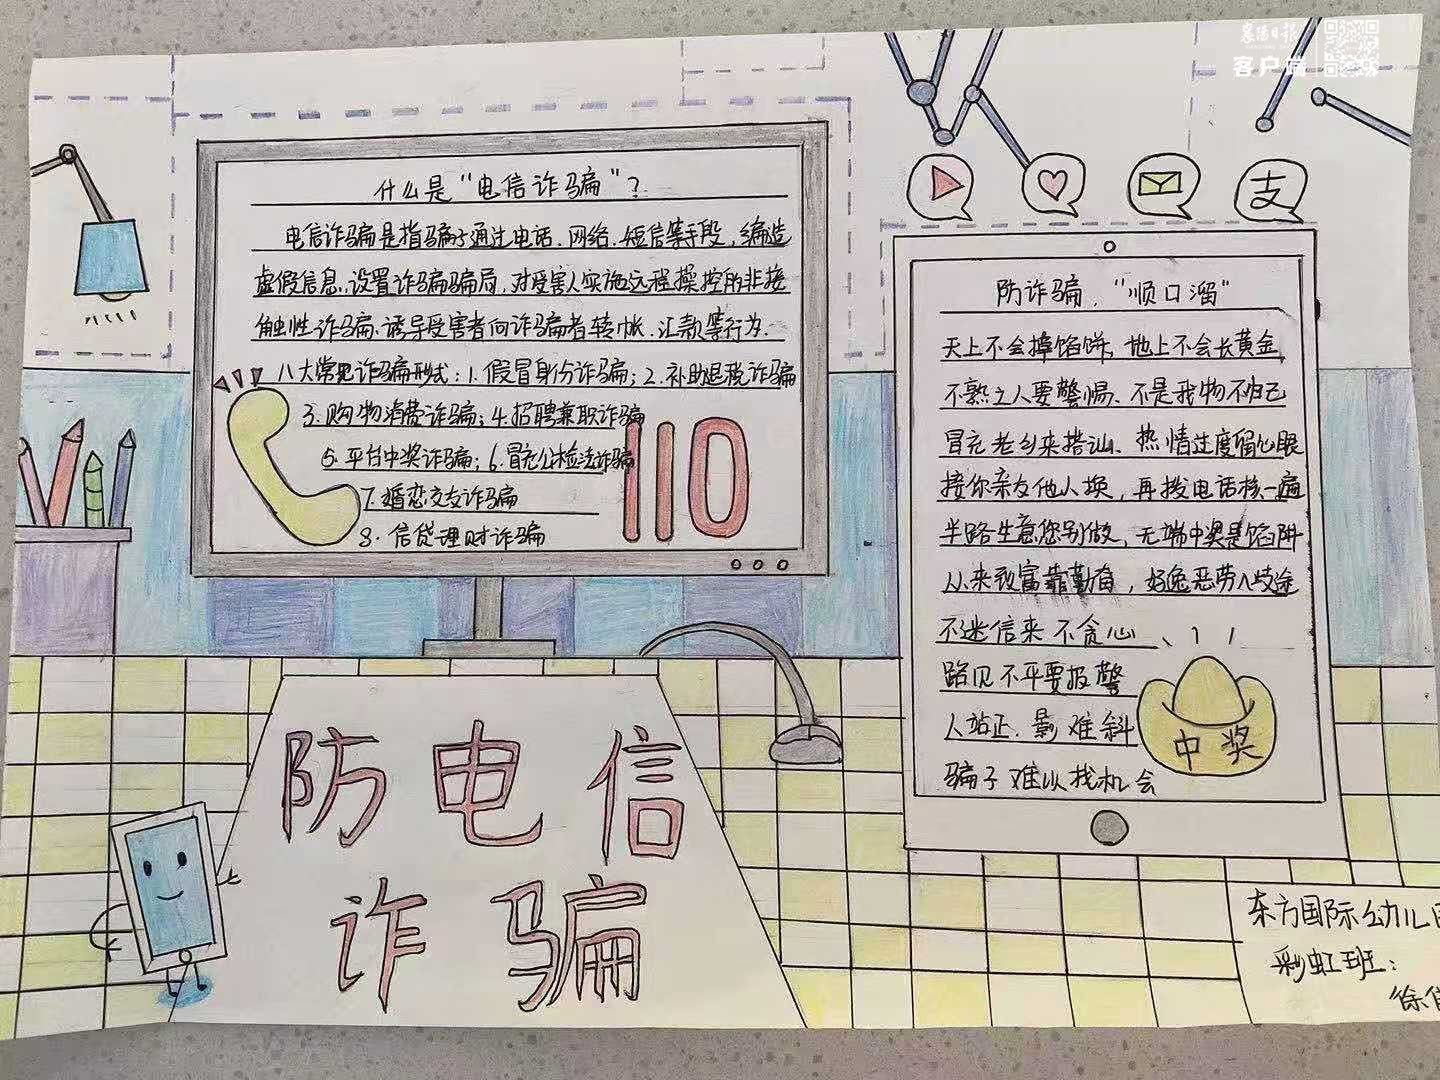 襄阳日报
客户端
什么是“电信诈骗”？
电信诈骗是指骗子通过电话、网络、短信等手段，编造
虚假信息、设置诈骗骗局，对受害人实施远程操控的非接
触性诈骗、诱导受害者向诈骗者转帐、汇款等行为.
八大常见诈骗形式：1.假冒身份诈骗；2.补助退税诈骗
3.购物消费诈骗；4.招聘兼职诈骗
5.平台中奖诈骗；6.冒充公检法诈骗
7.婚恋交友诈骗
8.信贷理财诈骗
110
支
防诈骗，“顺口溜”
天上不会掉馅饼，地上不会长黄金
不熟之人要警惕、不是我物不归己
冒充老乡来搭讪、热情过度留心眼
接你亲友他人换，再拨电话核一遍
半路生意您别做，无端中奖是馅阱
从来致富靠勤奋，好逸恶劳入歧途
不迷信来不贪心
路见不平要报警
人站正.影难斜
骗子难以找机会
中奖
防电信
诈骗
东方国际幼儿
彩虹班：
徐